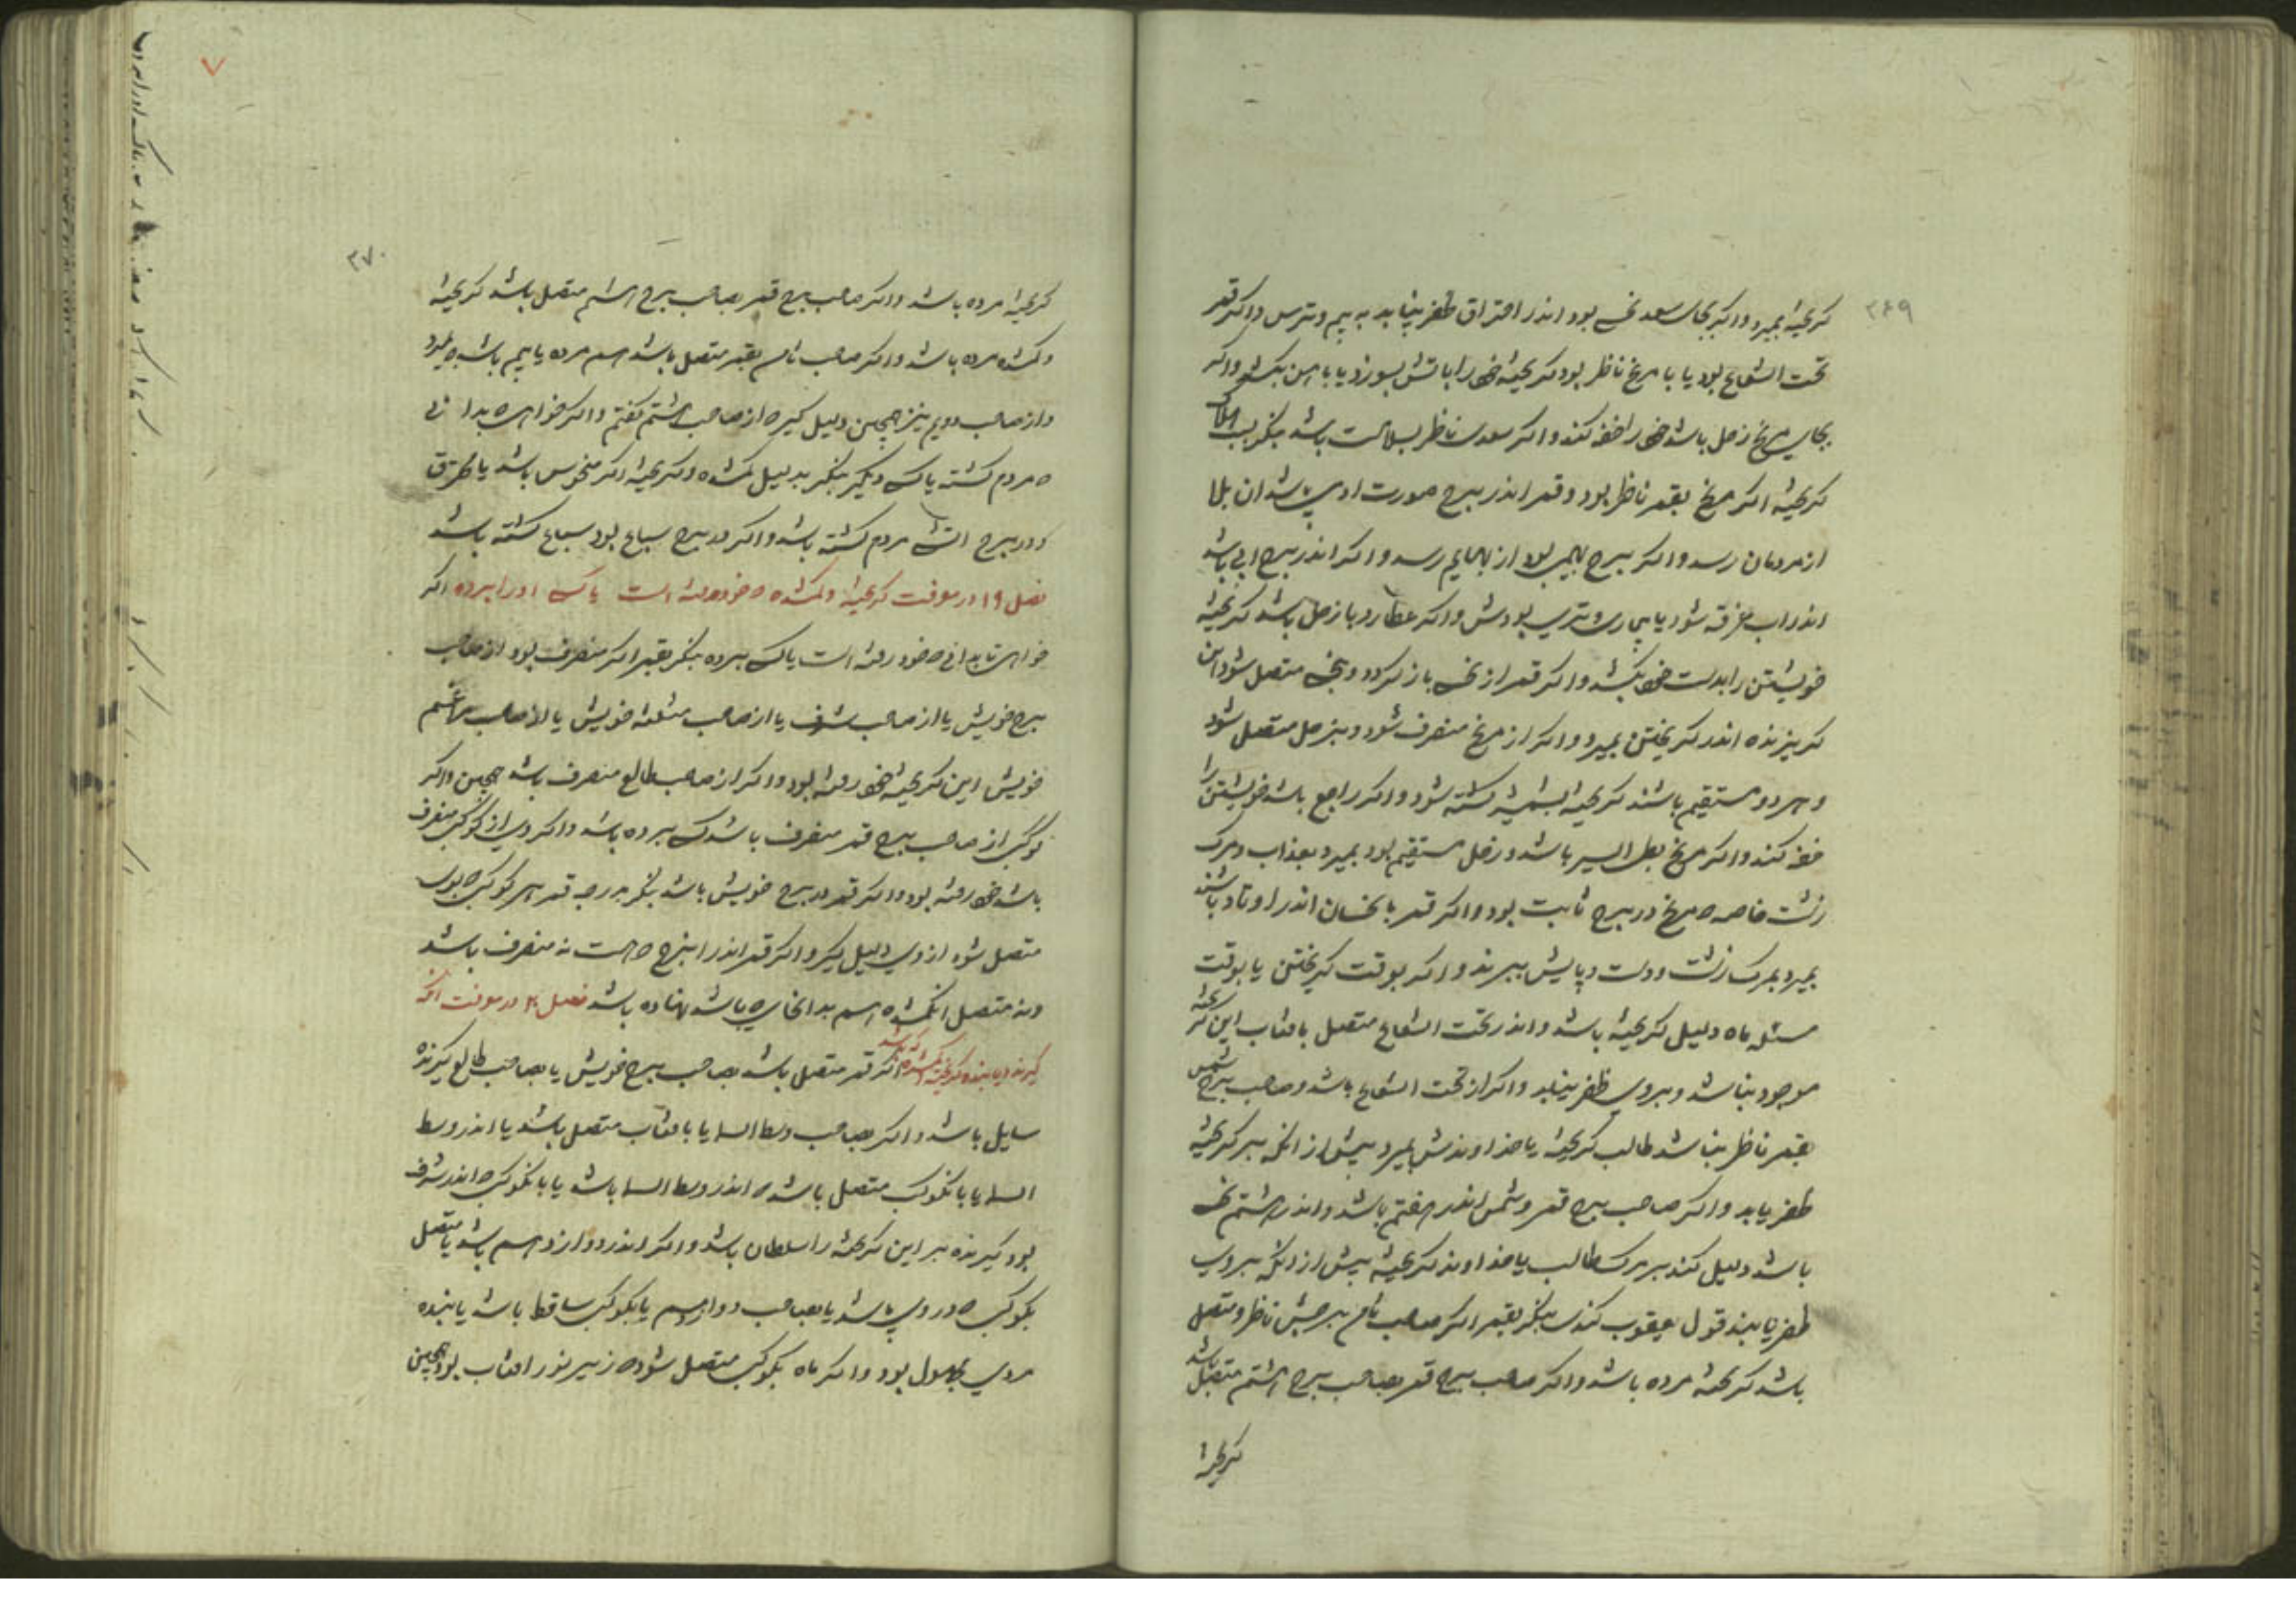 ۲۶۹
کریخته بمیرد واکر بجای سعد نحس بود اندر احتراق ظفر نیابد به بیم وترس واکر قمر
تحت الشعاع بود یا با مریخ ناظر بود کریخته خود را باتش بسوزد یا باهن بکشد واکر
بجای مریخ زحل باشد خود را خفه کند واکر سعدی ناظر بسلامت باشد بنکر بسبب هلاک
کریخته اکر مریخ بقمر ناظر بود وقمر اندر برج صورت ادمی باشد ان بلا
از مردمان رسد واکر ببرج بهیمی بود از بهایم رسد واکر اندر برج ابی باشد
اندر اب غرقه شود یا بیماری وتری بودش واکر عطارد با زحل باشد کریخته
خویشتن را بدست خود بکشد واکر قمر از نحس باز کردد وبنحس متصل شود این
کریزنده اندر کریختن بمیرد واکر از مریخ منصرف شود وبزحل متصل شود
وهر دو مستقیم باشند کریخته بشمشیر کشته شود واکر راجع باشد خویشتن را
خفه کند واکر مریخ بطی السیر باشد وزحل مستقیم بود بمیرد بعذاب ومرک
زشت خاصه که مریخ در برج ثابت بود واکر قمر با نحسان اندر اوتاد باشند
بمیرد بمرک زشت ودست وپایش ببرند واکر بوقت کریختن یا بوقت
مسئله ماه دلیل کریخته باشد واندر تحت الشعاع متصل بافتاب این کریخته
موجود نباشد وبروی ظفر نیابد واکر از تحت الشعاع باشد وصاحب برج شمس
بقمر ناظر نباشد طالب کریخته یا خداوندش بمیرد پیش از انکه بر کریخته
ظفر یابد واکر صاحب برج قمر وشمس اندر هفتم باشد واندر هشتم نحس
باشد دلیل کند بر مرک طالب یا خداوند کریخته پیش از انکه بروی
ظفر یابند قول یعقوب کندی بنکر بقمر اکر صاحب ثامن برجش ناظر ومتصل
باشد کریخته مرده باشد واکر صاحب برج قمر بصاحب برج هشتم متصل باشد
کریخته
۲۷۰
کریخته مرده باشد واکر صاحب برج قمر بصاحب برج هشتم متصل باشد کریخته
وکمشده مرده باشد واکر صاحب ثامن بقمر متصل باشد هم مرده یا بیم باشد که بمیرد
واز صاحب دویم نیز همچنین دلیل کیر که از صاحب هشتم کفتم واکر خواهی که بدانی
که مردم کشته یا کسی دیکر بنکر بدلیل کمشده وکریخته اکر منحوس باشد یا محترق
ودر برج انسی مردم کشته باشد واکر در برج سباع بود سباع کشته باشد
فصل ۱۹ در معرفت کریخته وکمشده که خود رفته است یا کسی او را ببرده اکر
خواهی تا بدانی که خود رفته است یا کسی ببرده بنکر بقمر اکر منصرف بود از صاحب
برج خویش یا از صاحب شرف یا از صاحب مثلثه خویش یا از صاحب
خویش این کریخته خود رفته بود واکر از صاحب طالع منصرف باشد همچنین واکر
کوکبی از صاحب برج قمر منصرف باشد کسی برده باشد واکر وی از کوکبی منصرف
باشد خود رفته بود واکر قمر در برج خویش باشد بنکر بدرجه قمر هر کوکبی که بوی
متصل شود از وی دلیل کیر واکر قمر اندر این برج که هست نه منصرف باشد
ونه متصل انکمشده هم بدانجا که باشد نهاده باشد فصل ۲۰ در معرفت انکه
کیرنده یابنده کریخته کمشده که باشد اکر قمر متصل باشد بصاحب برج خویش یا بصاحب طالع کیرنده
سایل باشد واکر بصاحب وسط السما یا بافتاب متصل باشد یا اندر وسط
السما یا بانکوکب متصل باشد که اندر وسط السما باشد یا بانکوکب که اندر شرف
بود کیرنده بر این کریخته را سلطان باشد واکر اندر دوازدهم باشد یا متصل
بکوکبی که در وی باشد یا بصاحب دوازدهم یا بکوکبی ساقط باشد یابنده
مردی مجهول بود واکر ماه بکوکبی متصل شود که زیر نور افتاب بود همچنین